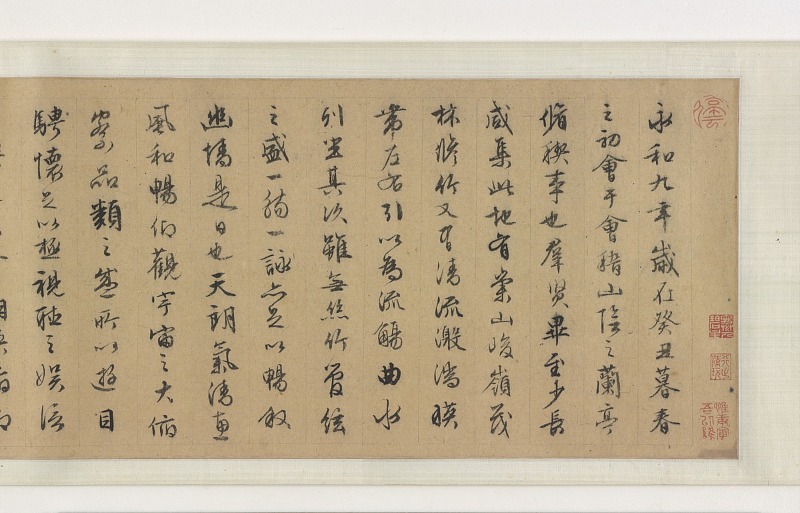 永和九年歲在癸丑暮春
之初會于會稽山陰之蘭亭
脩稧事也羣賢畢至少長
咸集此地有崇山峻嶺茂
林脩竹又有清流激湍暎
帶左右引以為流觴曲水
列坐其次雖無絲竹管絃
之盛一觴一詠亦足以暢敘
幽情是日也天朗氣清惠
風和暢仰觀宇宙之大俯
察品類之盛所以遊目
騁懷足以極視聽之娛信